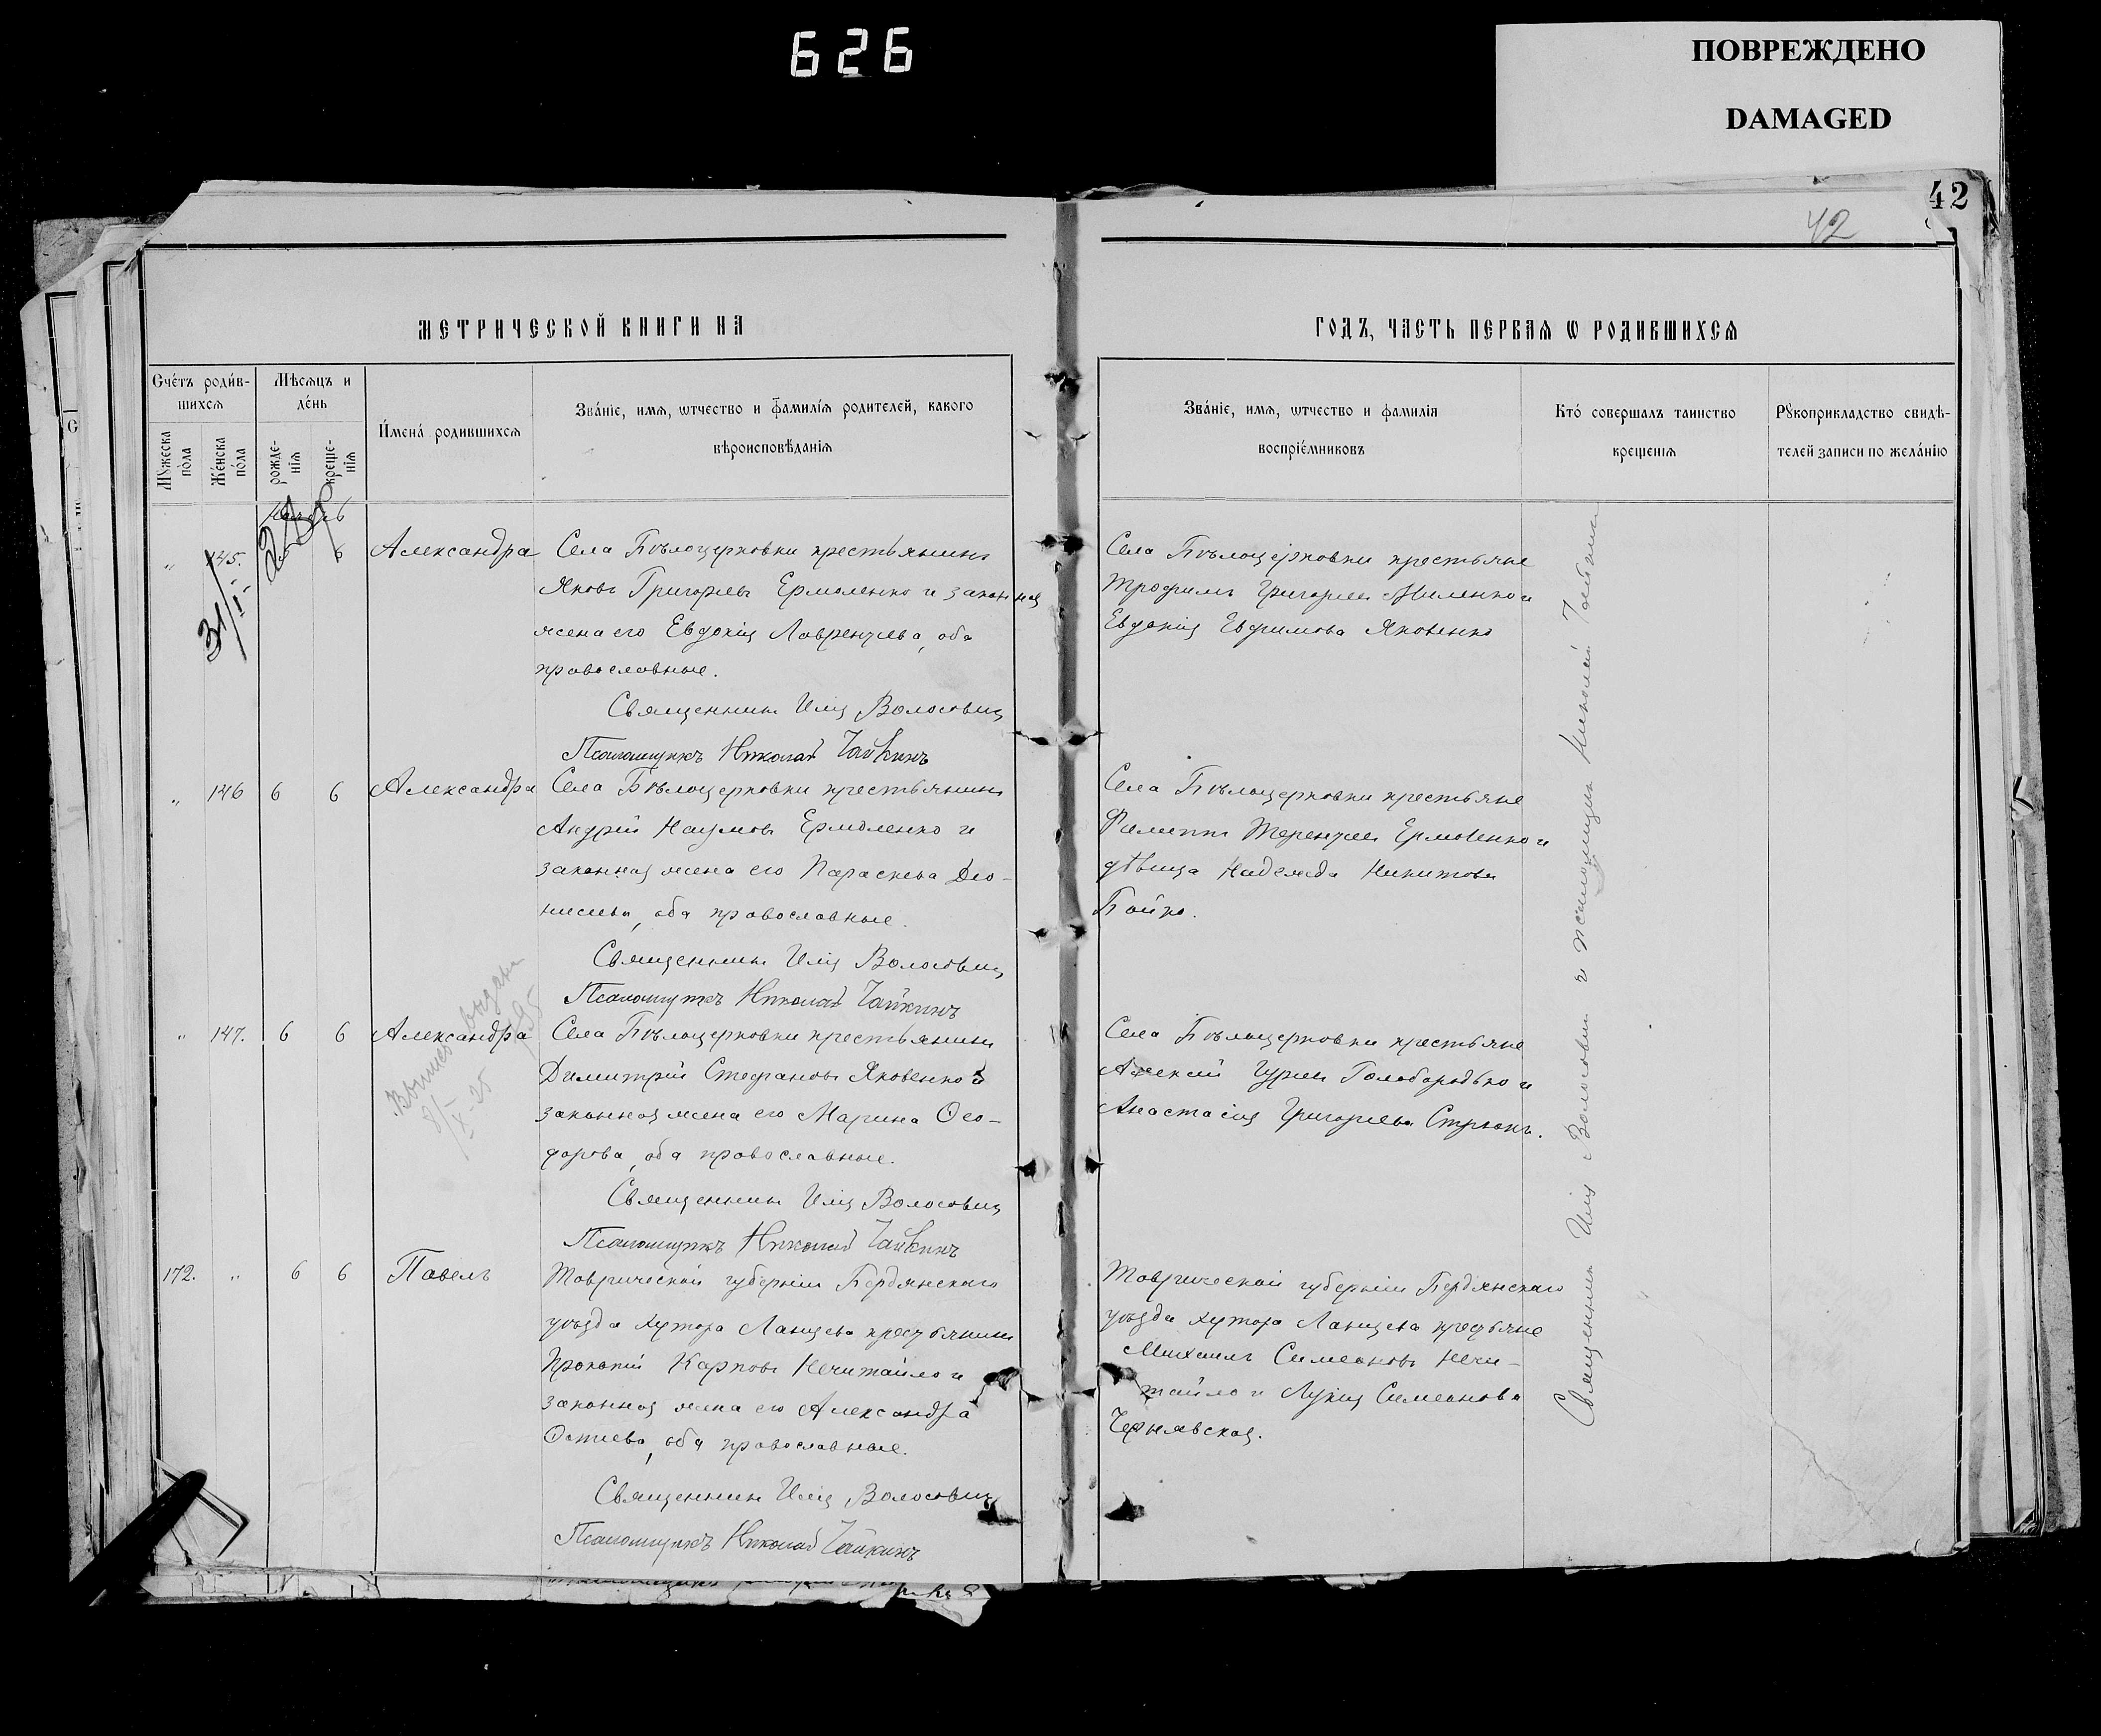 626
ПОВРЕЖДЕНО
DAMAGED
42
42
МЕТРИЧЕСКОЙ КНИГИ НА
ГОДЪ, ЧАСТЬ ПЕРВАЯ Ѡ РОДИВШИХСЯ
Счéтъ роди́в-
шихсѧ
Мꙋжеска
по́ла
Же́нска
по́ла
Мѣсѧцъ и
де́нь
рожде-
нїѧ
креще-
нїѧ
И́мена́ родившихсѧ
Зва́нїе, имѧ, ѡтчество и фамилїѧ родителей, какого
вѣроисповѣданїѧ
Зва́нїе, имѧ, ѡтчество и фамилїѧ
воспрїе́мниковъ
Кто́ совершалъ таинство
крещенїѧ
Рꙋкоприкладство свидѣ-
телей записи по жела́нїю
" 145. 6 Александра
Села Бѣлоцерковки крестьянинъ
Яковъ Григорьевъ Ермоленко и законная
жена его Евдокія Лаврентьева, оба
православные.
Священникъ Илія Волосовичъ
Псаломщикъ Николай Чайкинъ
Села Бѣлоцерковки крестьяне
Трофимъ Григорьевъ и
Евдокія Евфимова Яковенко
31/I
" 146 6 6 Александра
Села Бѣлоцерковки крестьянинъ
Андрей Наумовъ Ермоленко и
законная жена его Параскева Дио-
нисьева, оба православные.
Священникъ Илія Волосовичъ
Псаломщикъ Николай Чайкинъ
Села Бѣлоцерковки крестьяне
Филиппъ Терентьевъ Ермоленко и
дѣвица Надежда Никитова
Бойко.
" 147. 6 6 Александра
Села Бѣлоцерковки крестьянинъ
Димитрій Стефановъ Яковенко и
законная жена его Марина Ѳео-
дорова, оба православные.
Священникъ Илія Волосовичъ
Псаломщикъ Николай Чайкинъ
Села Бѣлоцерковки крестьяне
Алексій Гурьевъ Голобородько и
Анастасія Григорьева Стрюкъ.
172. " 6 6 Павелъ
Таврической губерніи Бердянскаго
уѣзда хутора Ланцева крестьянинъ
Прокопій Карповъ Нечитайло и
законная жена его Александра
оба православные.
Священникъ Илія Волосовичъ
Псаломщикъ Николай Чайкинъ
Таврической губерніи Бердянскаго
уѣзда хутора Ланцева крестьяне
Михаилъ Симеоновъ Нечи-
тайло и Лукія Симеонова
Чернявская.
Священникъ Илія Волосовичъ и псаломщикъ Николай Чайкинъ